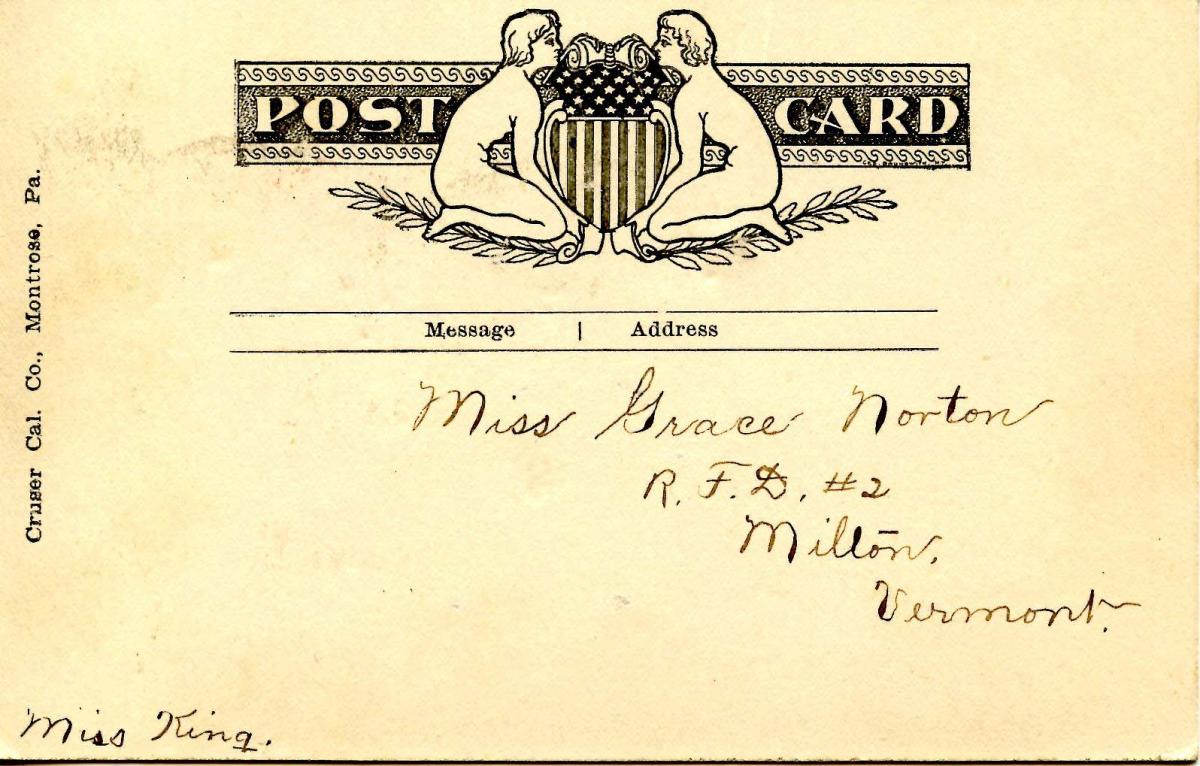 POST CARD
Cruger Cal. Co., Montrose, Pa.
Message | Address
Miss Grace Norton
R.F.D. #2
Milton,
Vermont.
Miss King.